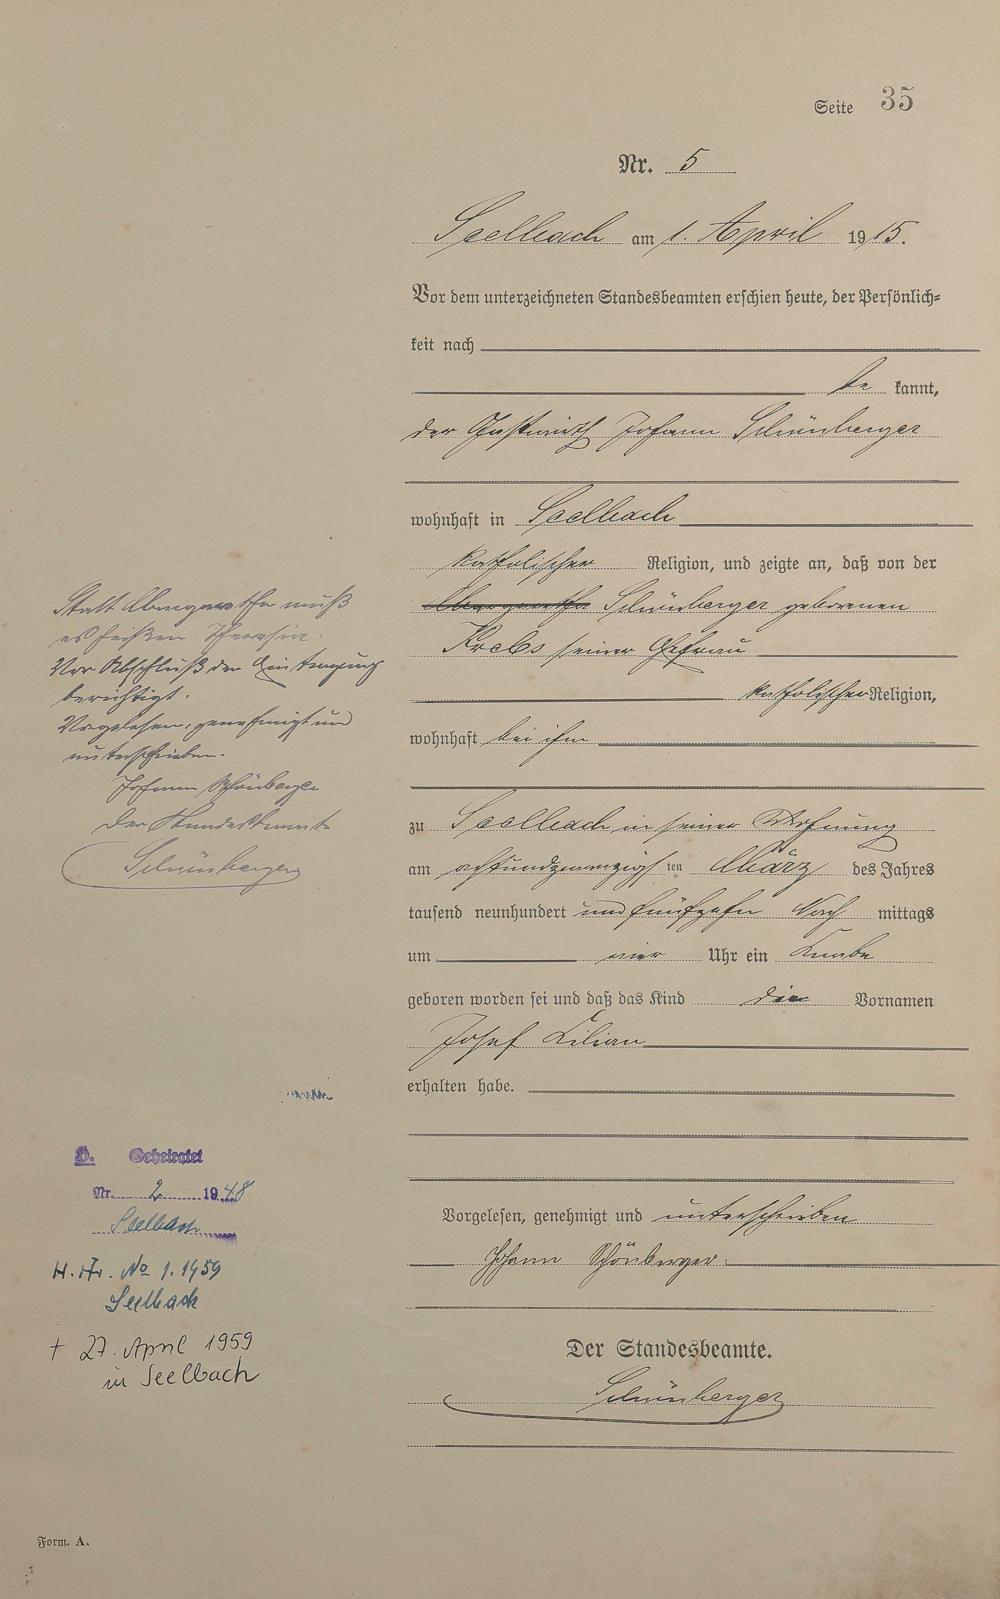 Seite 35
Nr. 5
Seelbach am 1. April 1915.
Vor dem unterzeichneten Standesbeamten erschien heute, der Persönlich=
keit nach
be kannt,
der Gastwirth Johann Schönberger
wohnhaft in Seelbach
katholischer Religion, und zeigte an, daß von der
Margaretha Schönberger gebornen
Krebs seiner Ehefrau
katholischer Religion,
wohnhaft bei ihm
zu Seelbach in seiner Wohnung
am achtundzwanzigsten März des Jahres
tausend neunhundert und fünfzehn Nach mittags
um vier Uhr ein Knabe
geboren worden sei und daß das Kind die Vornamen
Josef Kilian
erhalten habe.
Vorgelesen, genehmigt und unterschrieben
Johann Schönberger
Der Standesbeamte.
Schönberger
Statt Margaretha muß
es heißen Theresia.
Vor Abschluß der Eintragung
berichtigt.
Vorgelesen, genehmigt und
unterschrieben.
Johann Schönberger
Der Standesbeamte
Schönberger
Geheiratet
Nr. 2 1948
Seelbach
No 1. 1959
Seelbach
† 27. April 1959
in Seelbach
Form. A.